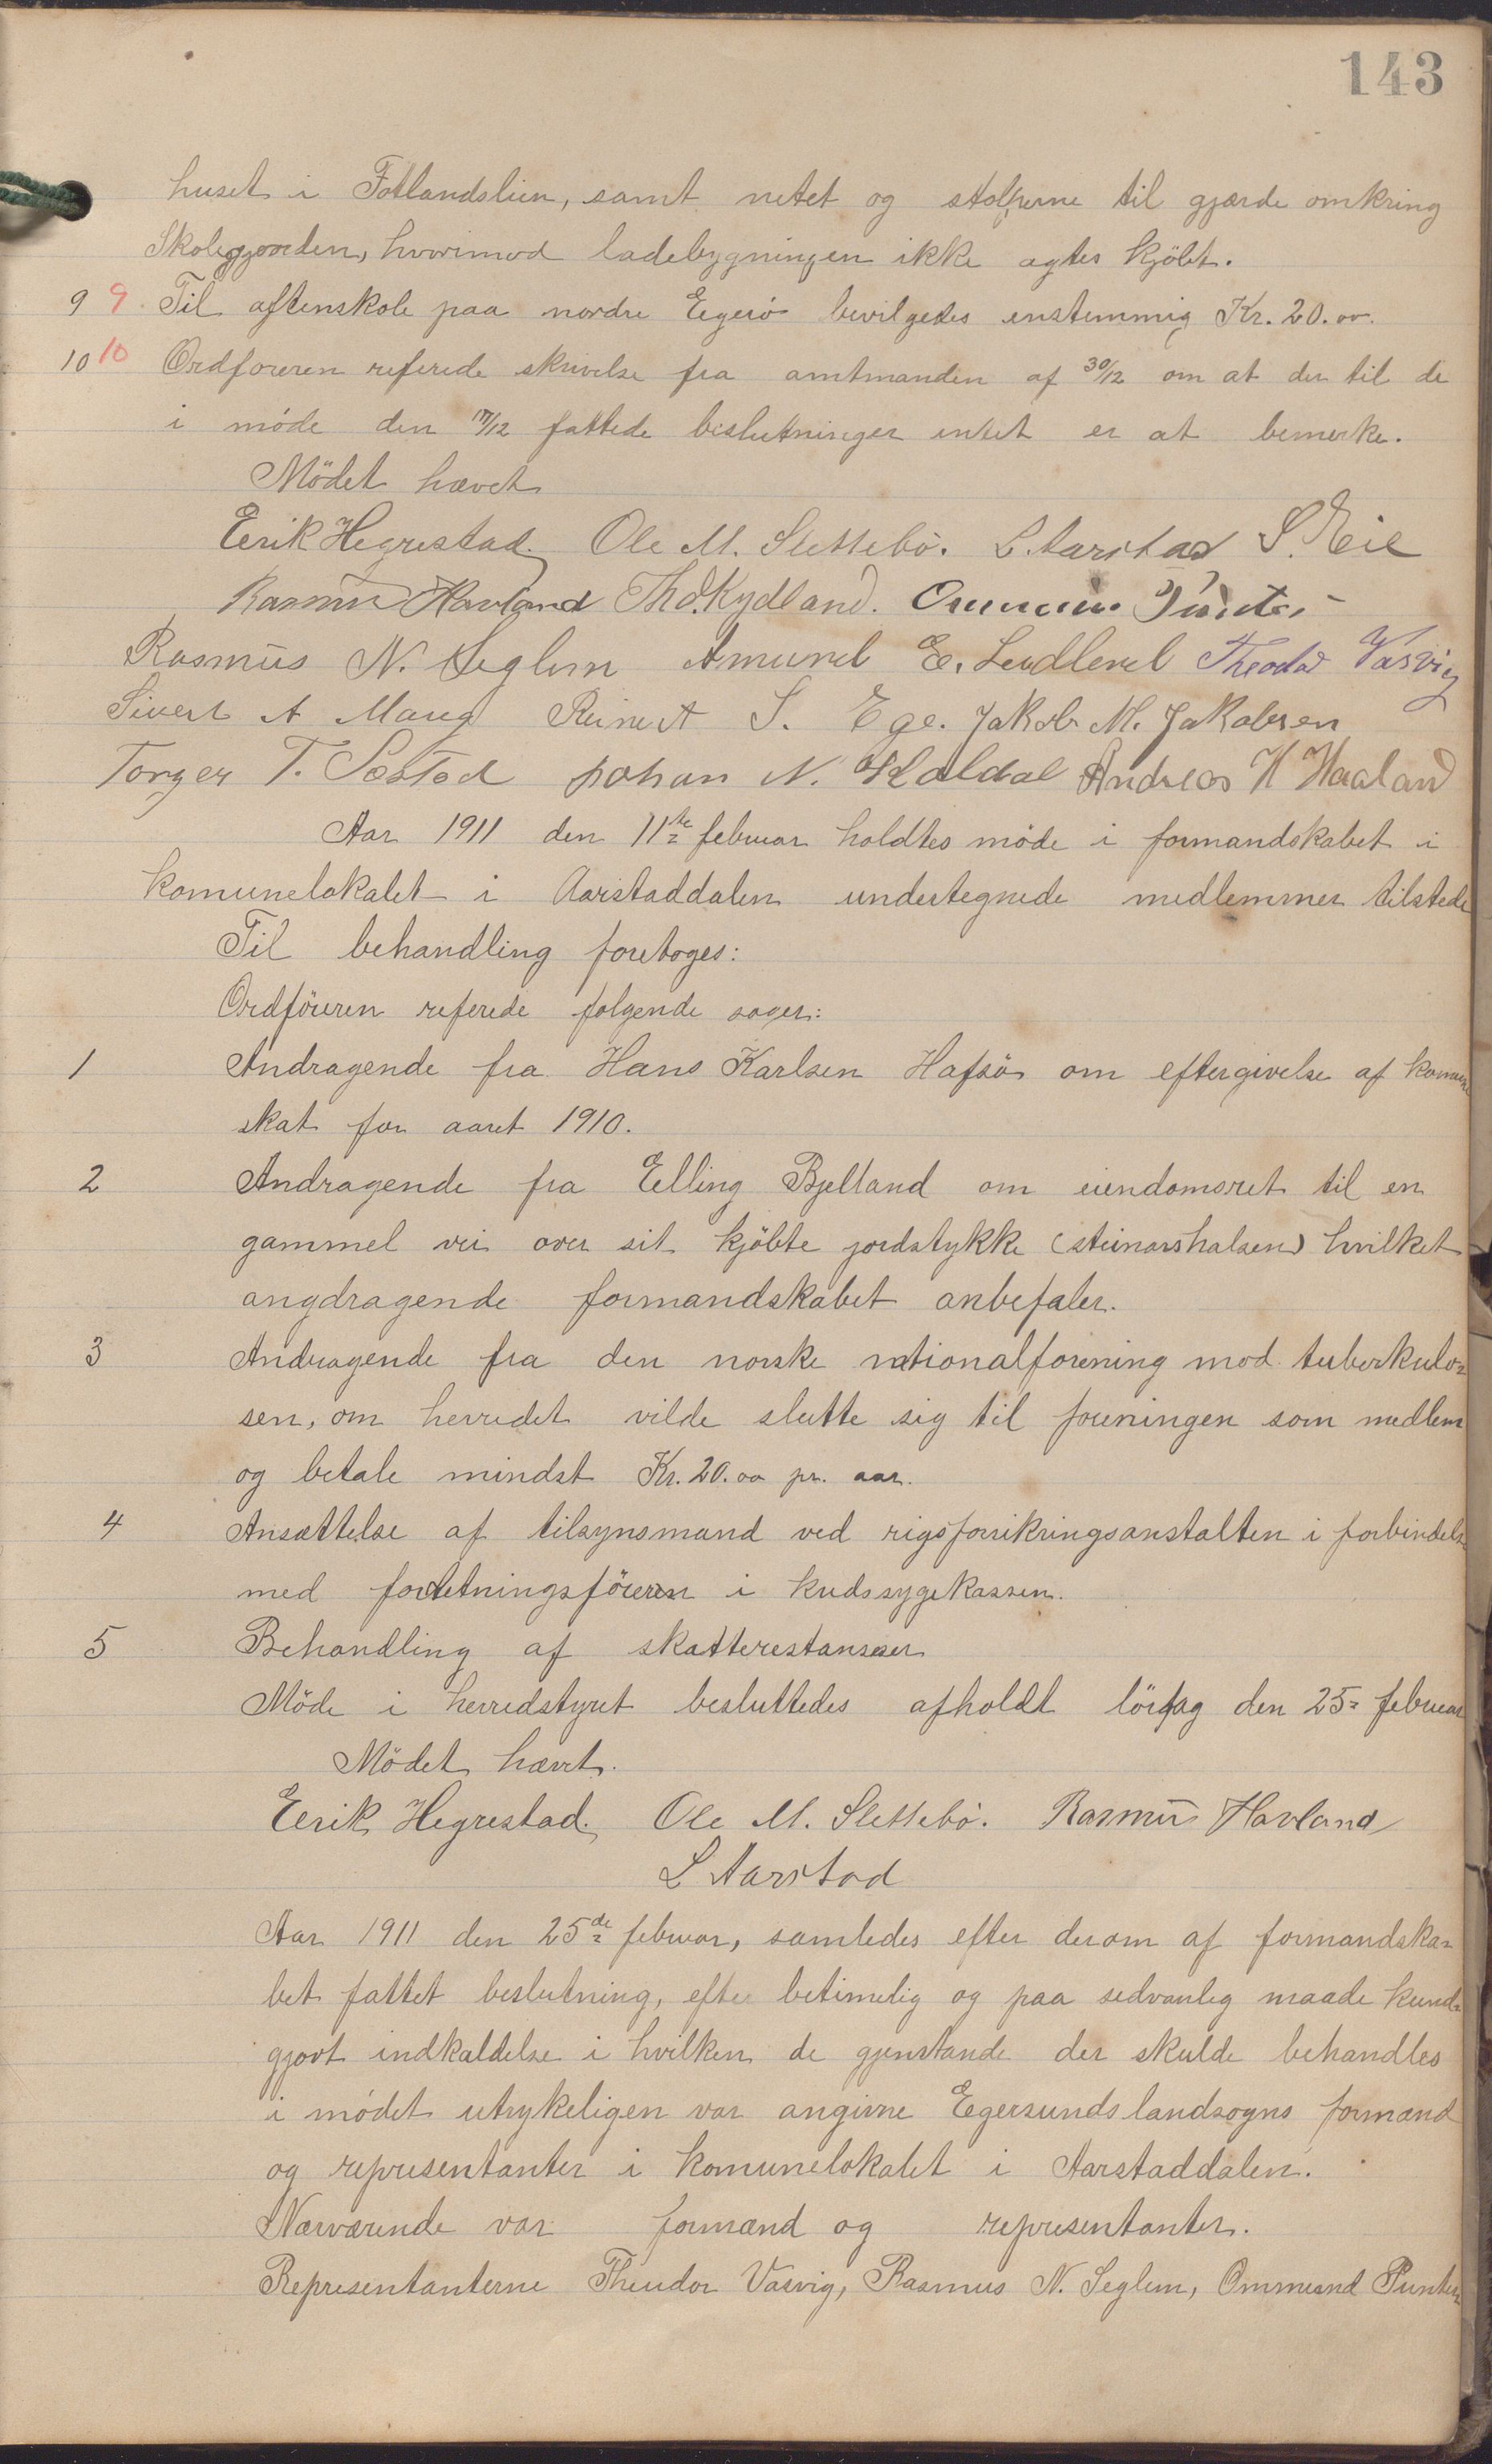 143
huset i Fotlandslien, samt netet og stolperne til gjærde omkring
Skolegjorden, hvorimod ladebygningen ikke agtes kjöbt.
9 9. Til aftenskole paa nordre Eegerö bevilgedes enstemmig Kr. 20.00.
10 10 Ordföreren referede skrivelse fra amtmanden af 30/12 om at der til de
i möde den 17/12 fattede beslutninger intet er at bemerke.
Mödet hævet
Eerik Hegrestad. Ole M. Slettebö. L. Aarstad S. Eie
Rasmus Havland Thd. Kydland.
Rasmus N. Seglem Amund E. Leidland Theodor Vasvig
Sivert A Mong Reinert S. Ege. Jakob M. Jakobsen
Torger T. Sæstad Johan N. Skaldal Andreas H Haaland
Aar 1911 den 11te februar holdtes möde i formandskabet i
komunelokalet i Aarstaddalen undertegnede medlemmer tilstede
Til behandling foretoges:
Ordföreren referede folgende sager:
1 Andragende fra Hans Karlsen Hafsö om eftergivelse af komune
skat for aaret 1910.
2 Andragende fra Elling Bjelland om eiendomsret til en
gammel vei over sit kjöbte jordstykke (steinarshalsen) hvilket
angdragende formandskabet anbefaler.
3 Andragende fra den norske nationalforening mod tuberkulo=
sen, om herredet vilde slutte sig til foreningen som medlem
og betale mindst Kr. 20.00 pr. aar.
4 Ansættelse af tilsynsmand ved rigsforsikringsanstalten i forbindelse
med foretningsföreren i kredssygekassen.
5 Behandling af skatterestanser
Möde i herredstyret besluttedes afholdt lördag den 25= februar
Mödet hævet.
Eerik Hegrestad. Ole M. Slettebö. Rasmus Havland
L Aarstad
Aar 1911 den 25de februar, samledes efter derom af formandska=
bet fattet beslutning, efter betimelig og paa sedvanleg maade kund=
gjort indkaldelse i hvilken de gjenstande der skulde behandles
i mödet utrykeligen var angivne Egersunds landsogns formænd
og representanter i komunelokalet i Aarstaddalen.
Nærværende var formænd og representanter.
Representanterne Theodor Vasvig, Rasmus N. Seglem, Ommund Puntervold